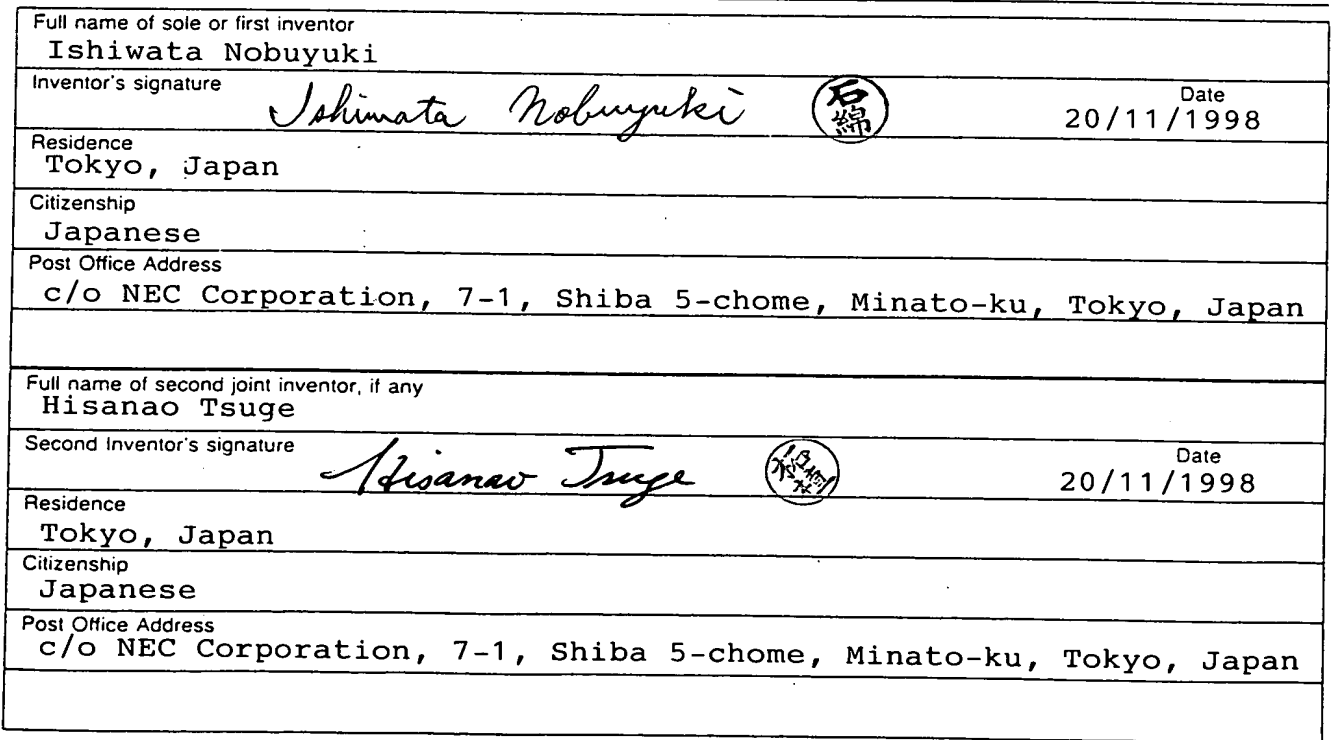 Full name of sole or first inventor
Ishiwata Nobuyuki
Inventor's signature
Ishiwata Nobuyuki 石綿
Date
20/11/1998
Residence
Tokyo, Japan
Citizenship
Japanese
Post Office Address
c/o NEC Corporation, 7-1, Shiba 5-chome, Minato-ku, Tokyo, Japan
Full name of second joint inventor, if any
Hisanao Tsuge
Second Inventor's signature
Hisanao Tsuge
Date
20/11/1998
Residence
Tokyo, Japan
Citizenship
Japanese
Post Office Address
c/o NEC Corporation, 7-1, Shiba 5-chome, Minato-ku, Tokyo, Japan